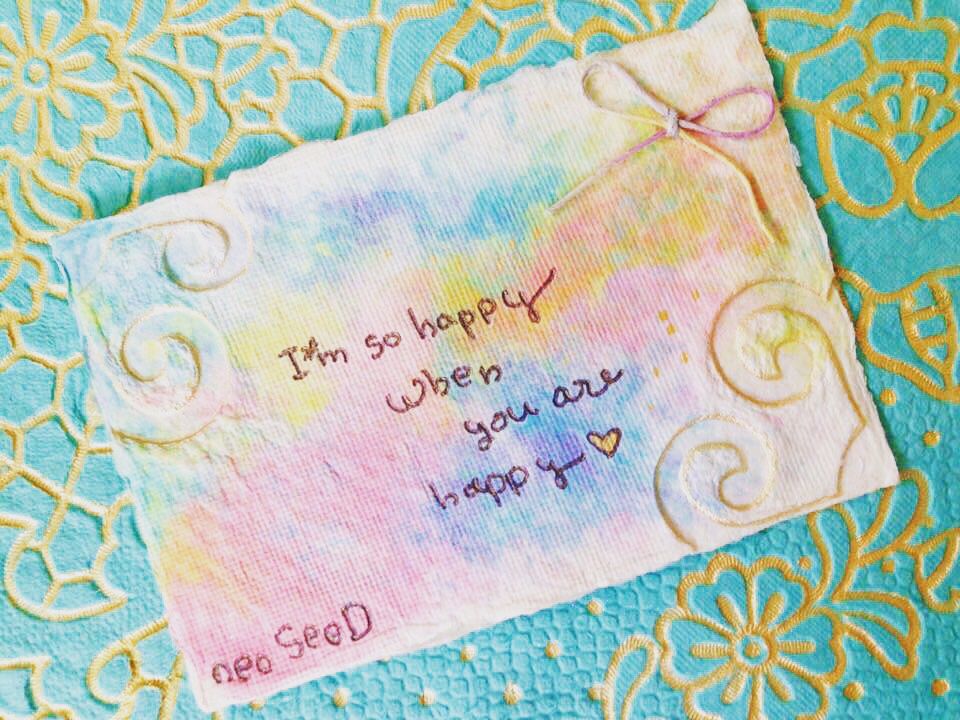 I'm so happy
when
you are
happy ♡
neo SeeD